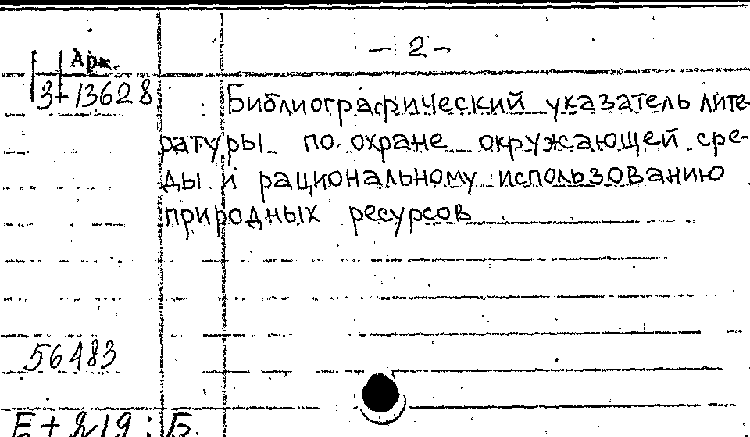 - 2 -
Арх.
3-13628
Библиографический указатель лите-
ратуры по охране окружающей сре-
ды и рациональному использованию
природных ресурсов
56483
Е+Я19:Б